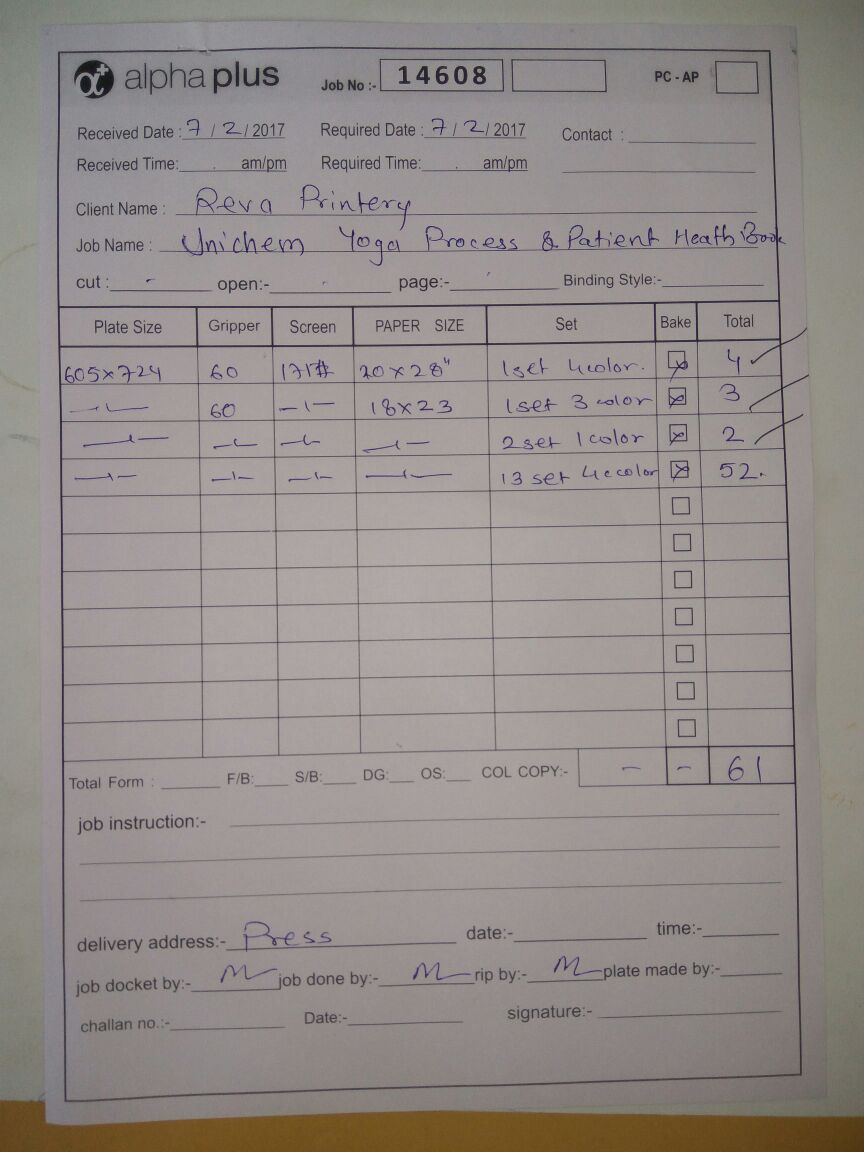 alpha plus Job No :- 14608 PC - AP
Received Date : 7 / 2 / 2017 Required Date : 7 / 2 / 2017 Contact :
Received Time: am/pm Required Time: am/pm
Client Name : Reva Printery
Job Name : Unichem Yoga Process & Patient Heath Book
cut : - open:- - page:- Binding Style:-
Plate Size Gripper Screen PAPER SIZE Set Bake Total
605×724 60 20×28" 1 set 4 color. 4
60 18×23 1 set 3 color 3
2 set 1 color 2
13 set color 52.
Total Form : F/B: S/B: DG: OS: COL COPY:- - - 61
job instruction:-
delivery address:- Press date:- time:-
job docket by:- job done by:- rip by:- plate made by:-
challan no.:- Date:- signature:-